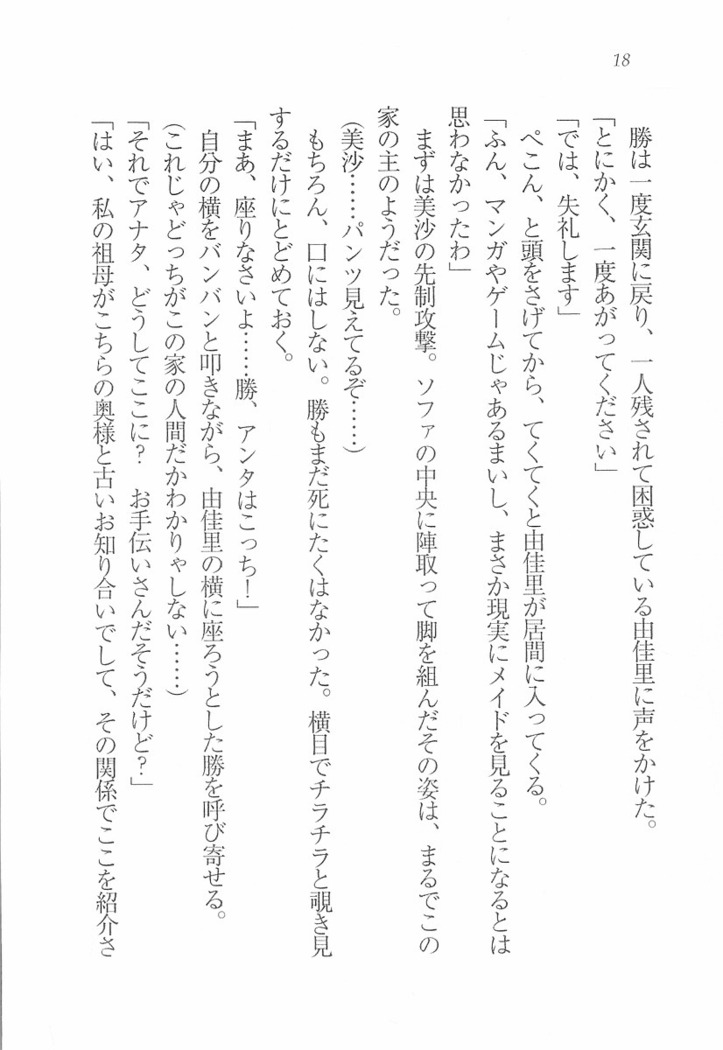 18
勝は一度玄関に戻り、一人残されて困惑している由佳里に声をかけた。
「とにかく、一度あがってください」
「では、失礼します」
ぺこん、と頭をさげてから、てくてくと由佳里が居間に入ってくる。
「ふん、マンガやゲームじゃあるまいし、まさか現実にメイドを見ることになるとは
思わなかったわ」
まずは美沙の先制攻撃。ソファの中央に陣取って脚を組んだその姿は、まるでこの
家の主のようだった。
(美沙……パンツ見えてるぞ……)
もちろん、口にはしない。勝もまだ死にたくはなかった。横目でチラチラと覗き見
するだけにとどめておく。
「まあ、座りなさいよ……勝、アンタはこっち！」
自分の横をバンバンと叩きながら、由佳里の横に座ろうとした勝を呼び寄せる。
(これじゃどっちがこの家の人間だかわかりゃしない……)
「それでアナタ、どうしてここに？　お手伝いさんだそうだけど？」
「はい、私の祖母がこちらの奥様と古いお知り合いでして、その関係でここを紹介さ